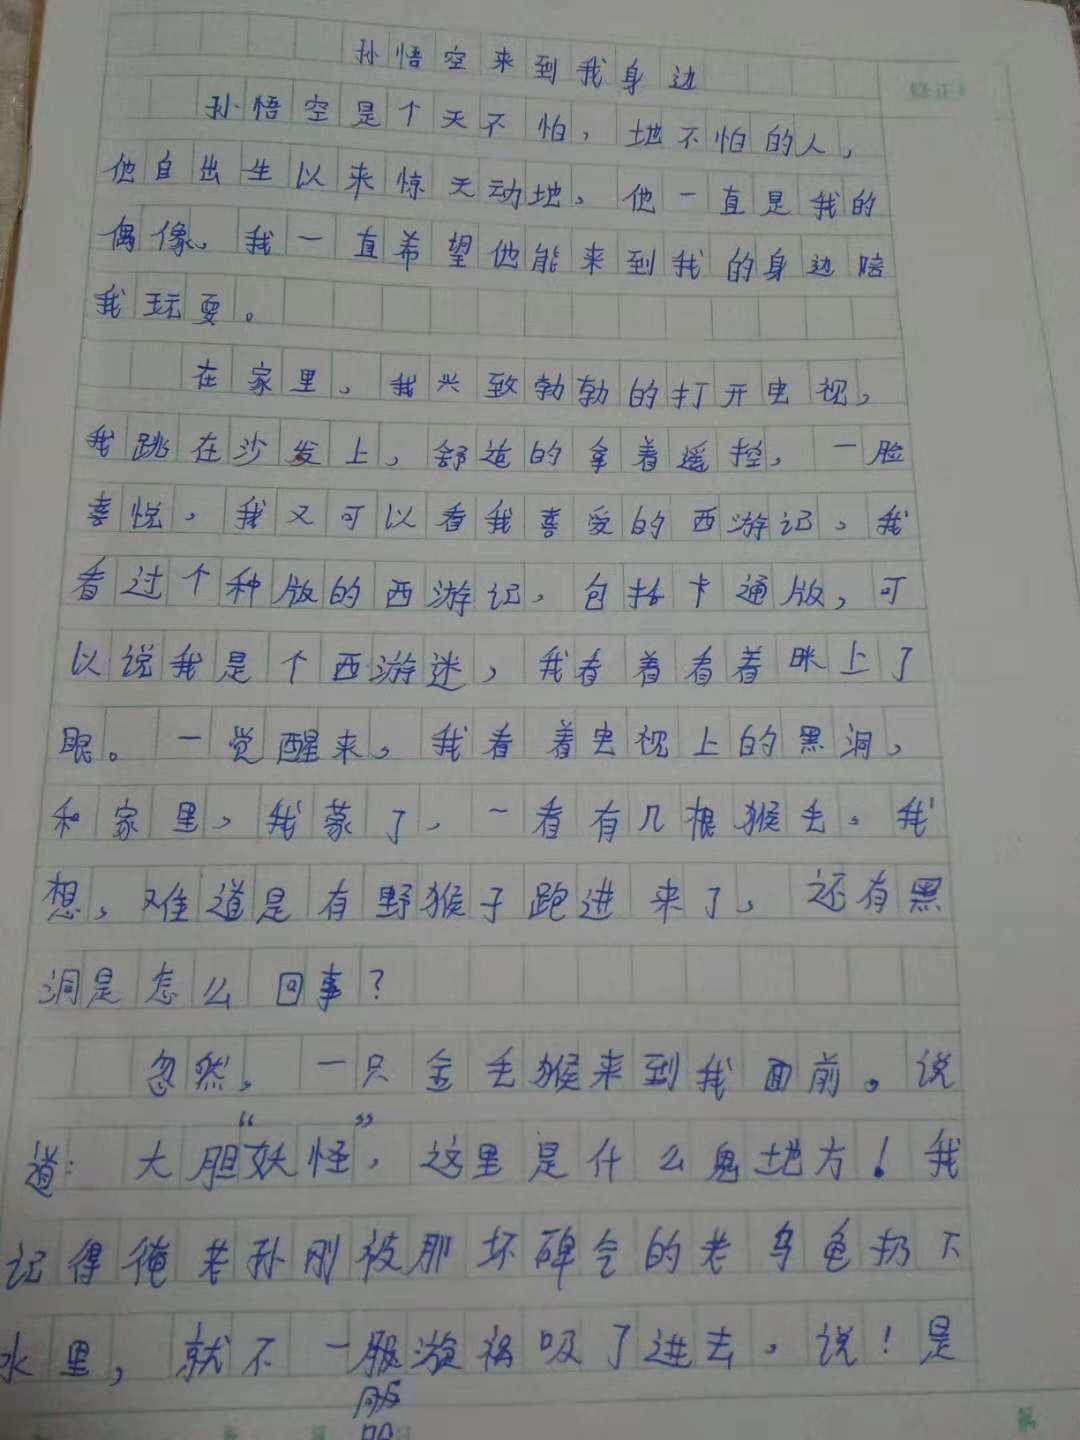 孙悟空来到我身边
孙悟空是个天不怕，地不怕的人，
他自出生以来惊天动地，他一直是我的
偶像，我一直希望他能来到我的身边陪
我玩耍。
在家里，我兴致勃勃的打开电视，
我跳在沙发上，舒适的拿着遥控，一脸
喜悦，我又可以看我喜爱的西游记，我
看过个种版的西游记，包括卡通版，可
以说我是个西游迷，我看着看着眯上了
眼。一觉醒来，我看着电视上的黑洞，
和家里，我蒙了，一看有几根猴毛。我
想，难道是有野猴子跑进来了，还有黑
洞是怎么回事？
忽然，一只金毛猴来到我面前。说
道：大胆“妖怪”，这里是什么鬼地方！我
记得俺老孙刚被那坏碑气的老乌龟扔下
水里，就不一服漩祸吸了进去，说！是